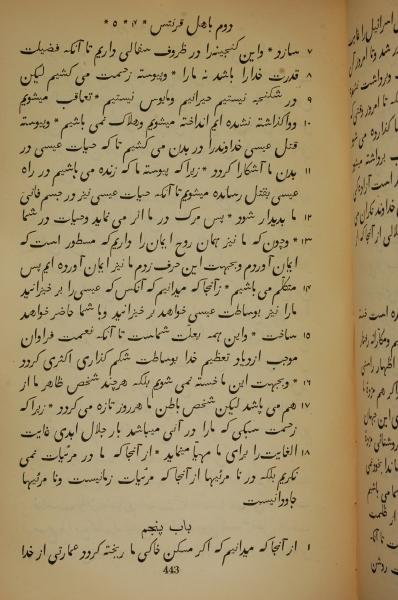 دوم باهل قرنتس * ۴ * ۵ *
۷ سازد * و این کنجینه را در ظروف سفالی داریم تا آنکه فضیلت
۸ قدرت خدا را باشد نه ما را * و پیوسته زحمت می کشیم لیکن
۹ در شکنجه نیستیم حیرانیم و مایوس نیستیم * تعاقب میشویم
۱۰ و واکذاشته نشده ایم انداخته میشویم و هلاک نمی باشیم * و پیوسته
قتل عیسی خداوند را در بدن می کشیم تا که حیات عیسی در
۱۱ بدن ما آشکارا کردد * زیرا که پیوسته ما که زنده می باشیم در راه
عیسی بقتل رسانده میشویم تا آنکه حیات عیسی نیز در جسم فانی
۱۲ ما پدیدار شود * پس مرک در ما اثر می نماید و حیات در شما
۱۳ * و چون که ما نیز همان روح ایمان را داریم که مسطور است که
ایمان آوردم و بجهت این حرف زدم ما نیز ایمان آورده ایم پس
۱۴ متکلم می باشیم * زآنجا که میدانیم که آنکس که عیسی را بر خیزانید
ما را نیز بوساطت عیسی خواهد بر خیزانید و با شما حاضر خواهد
۱۵ ساخت * و این همه بعلت شماست تا آنکه نعمت فراوان
موجب ازدیاد تعظیم خدا بوساطت شکر کذاری اکثری کردد
۱۶ * و بجهت این ما خسته نمی شویم بلکه هر چند شخص ظاهر ما از
۱۷ هم می باشد لیکن شخص باطن ما هر روز تازه می کردد * زیرا که
زحمت سبکی که ما را در آنی میباشد بار جلال ابدی غایت
۱۸ الغایت را برای ما مهیا مینماید * از آنجا که ما در مرئیات نمی
نکریم بلکه در نا مرئیها از آنجا که مرئیات زمانیست و نا مرئیها
جاودانیست
باب پنجم
۱ از آنجا که میدانیم که اکر مسکن خاکی ما ریخته کردد عمارتی از خدا
443